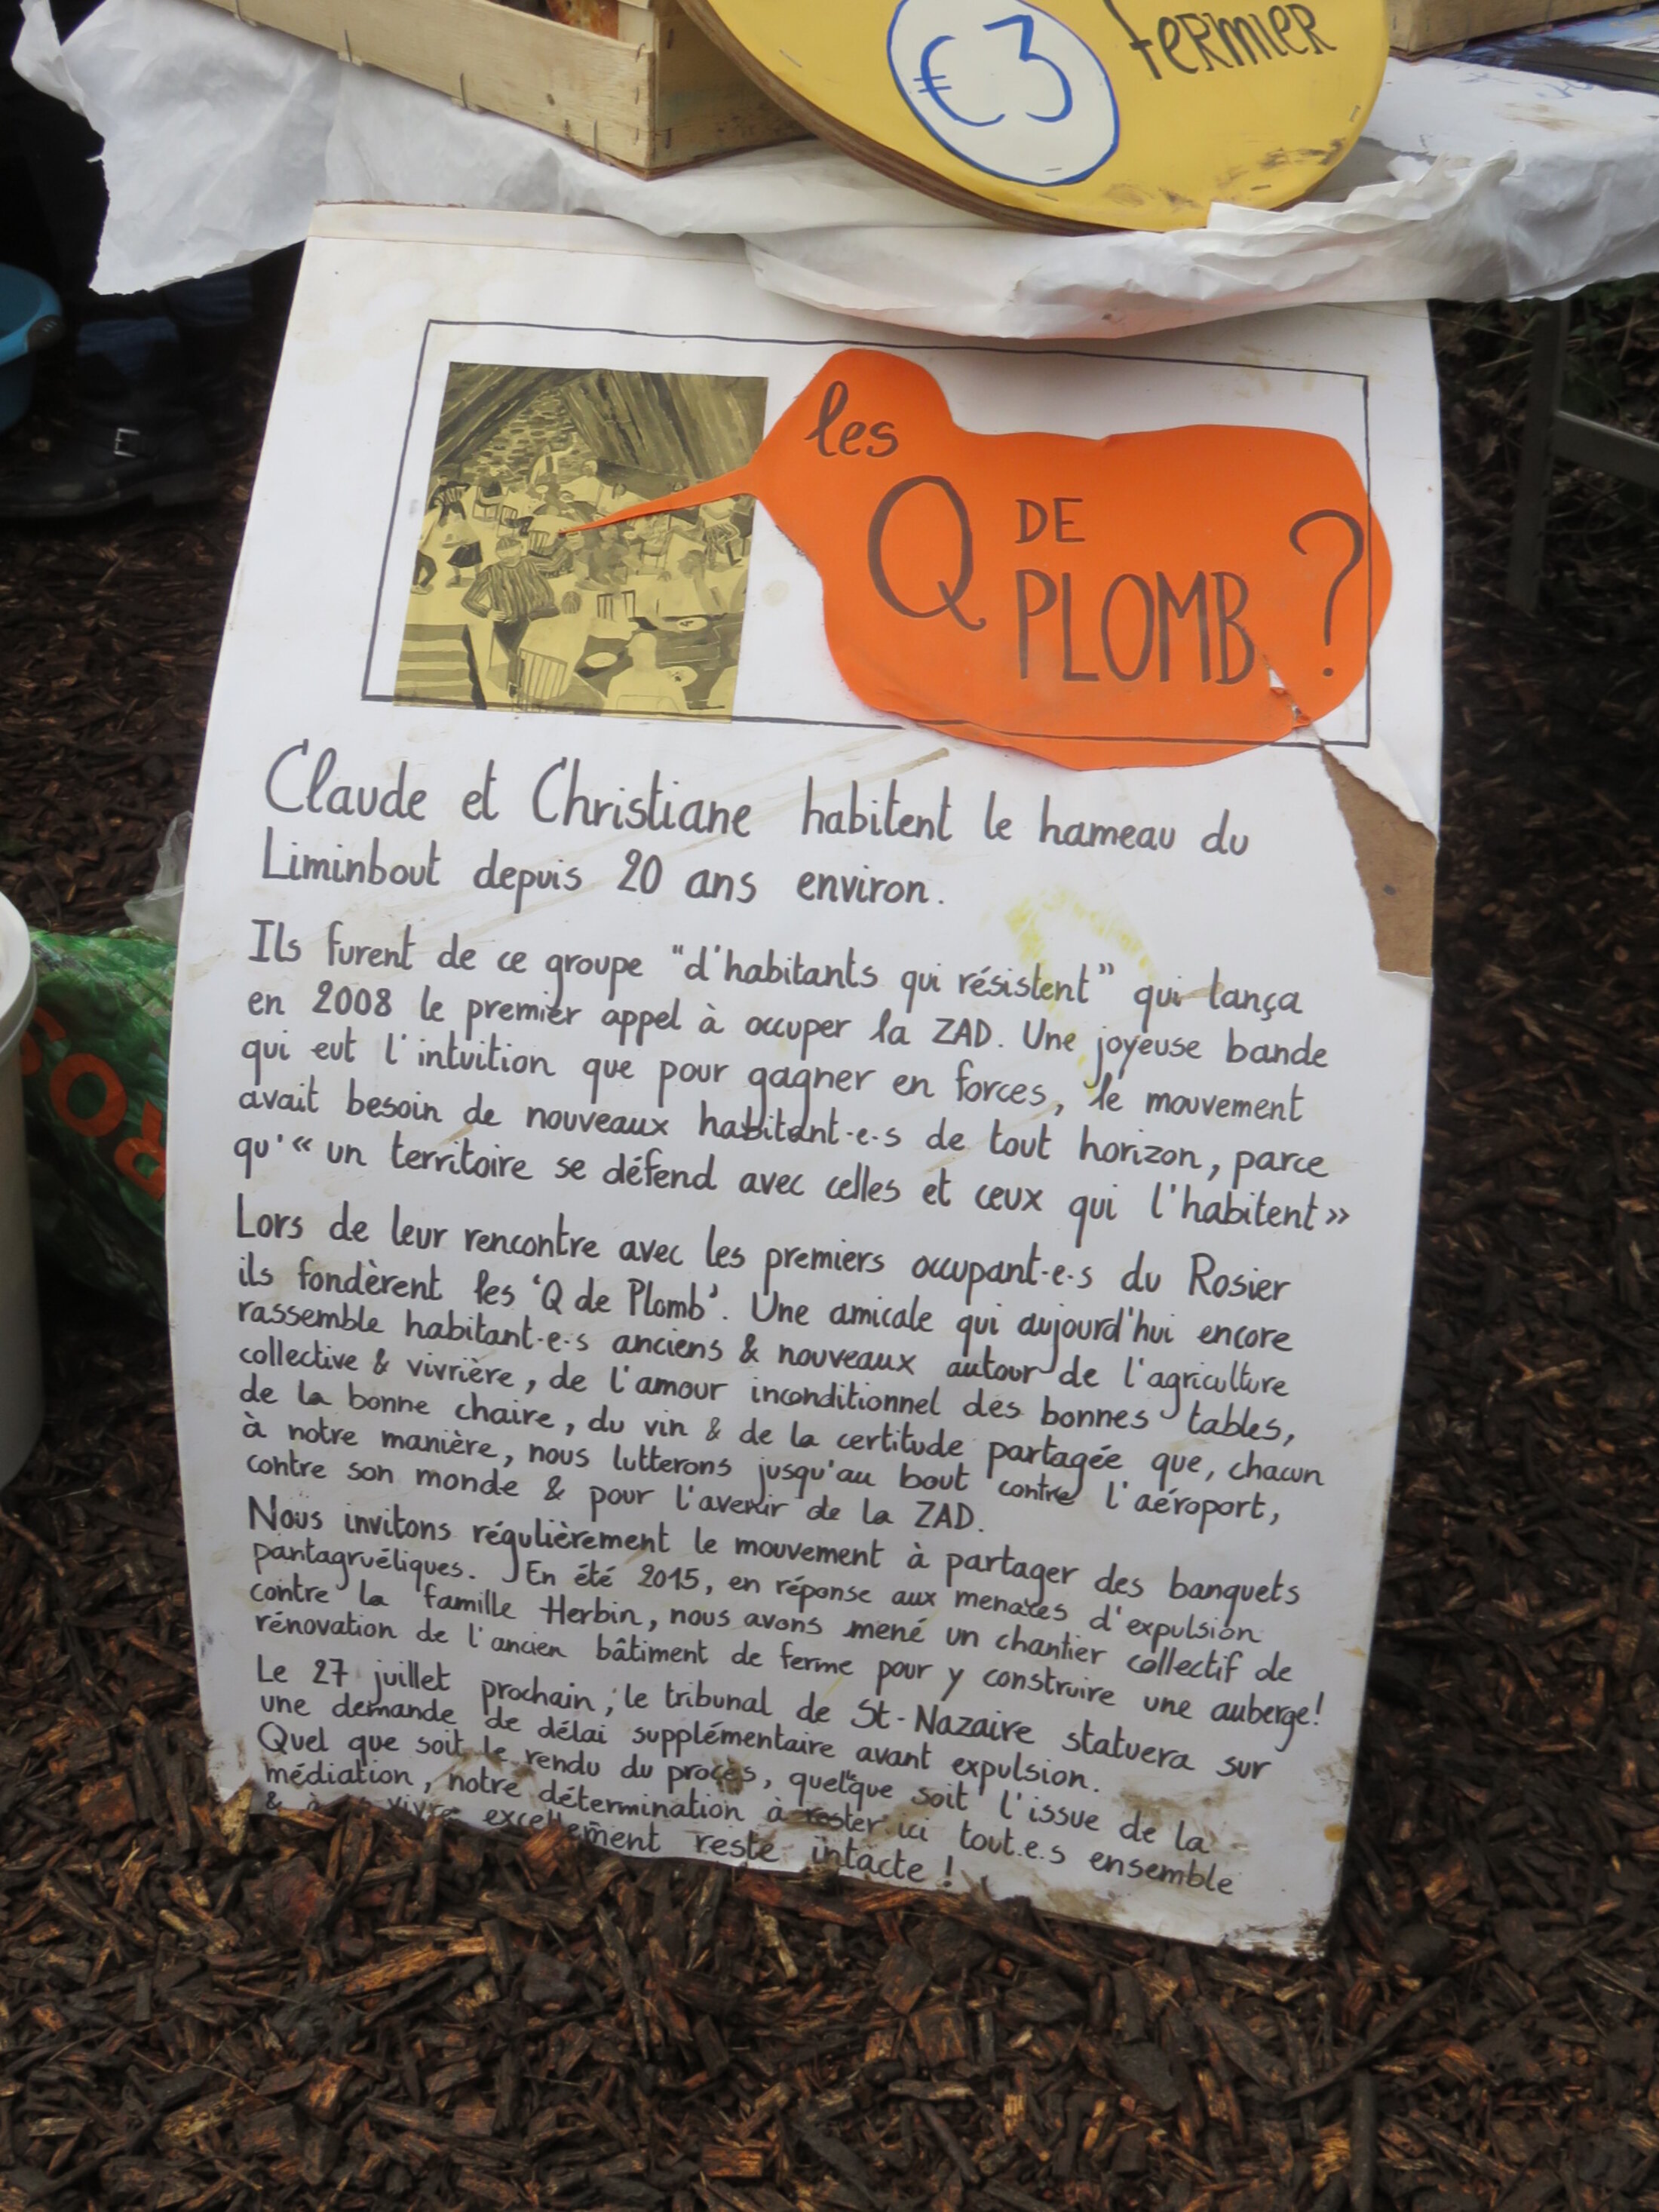 €3
fermier
les
Q DE
PLOMB ?
Claude et Christiane habitent le hameau du
Liminbout depuis 20 ans environ.
Ils furent de ce groupe "d'habitants qui résistent" qui lança
en 2008 le premier appel à occuper la ZAD. Une joyeuse bande
qui eut l'intuition que pour gagner en forces, le mouvement
avait besoin de nouveaux habitant-e-s de tout horizon, parce
qu'« un territoire se défend avec celles et ceux qui l'habitent »
Lors de leur rencontre avec les premiers occupant-e-s du Rosier
ils fondèrent les 'Q de Plomb'. Une amicale qui aujourd'hui encore
rassemble habitant-e-s anciens & nouveaux autour de l'agriculture
collective & vivrière, de l'amour inconditionnel des bonnes tables,
de la bonne chaire, du vin & de la certitude partagée que, chacun
à notre manière, nous lutterons jusqu'au bout contre l'aéroport,
contre son monde & pour l'avenir de la ZAD.
Nous invitons régulièrement le mouvement à partager des banquets
pantagruéliques. En été 2015, en réponse aux menaces d'expulsion
contre la famille Herbin, nous avons mené un chantier collectif de
rénovation de l'ancien bâtiment de ferme pour y construire une auberge!
Le 27 juillet prochain, le tribunal de St-Nazaire statuera sur
une demande de délai supplémentaire avant expulsion.
Quel que soit le rendu du procès, quelque soit l'issue de la
médiation, notre détermination à rester ici tout.e.s ensemble
& à vivre excellement reste intacte !